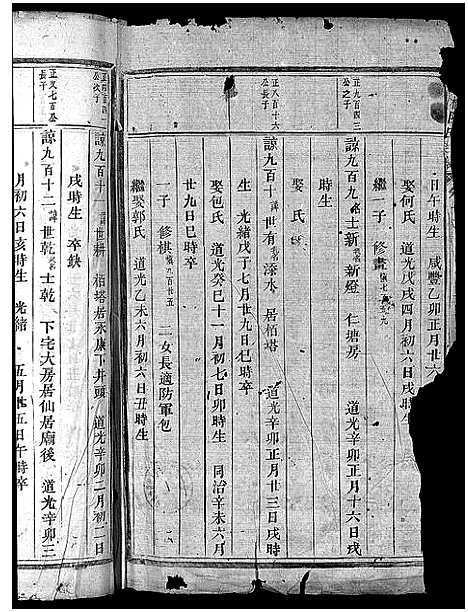 日午時生 咸豐乙卯正月廿六
娶何氏 道光戊戌四月初六日戌時生
繼一子 修畫
正九百四二公之子
諒九百九 名士新 新燈 仁塘房 道光辛卯正月十六日戌
時生
娶 氏
正八百十六公長子
諒九百十 諱世有 滁水 居柏塔 道光辛卯正月廿三日戌時
生 光緒戊子七月廿九日巳時卒
娶包氏 道光癸巳十一月初七日卯時生 同治辛未六月
廿九日巳時卒
一子 修棋 慎九百廿五 二女長適防軍包
繼娶郭氏 道光乙未六月初六日丑時生
公次子
諒九百十一 諱世耕 柏塔居永康下井頭 道光辛卯二月初二日
戌時生 卒缺
正又七百公長子
諒九百十二 諱世乾 士乾 下宅大房居仙居廟後 道光辛卯三
月初六日亥時生 光緒 五月廿五日午時卒